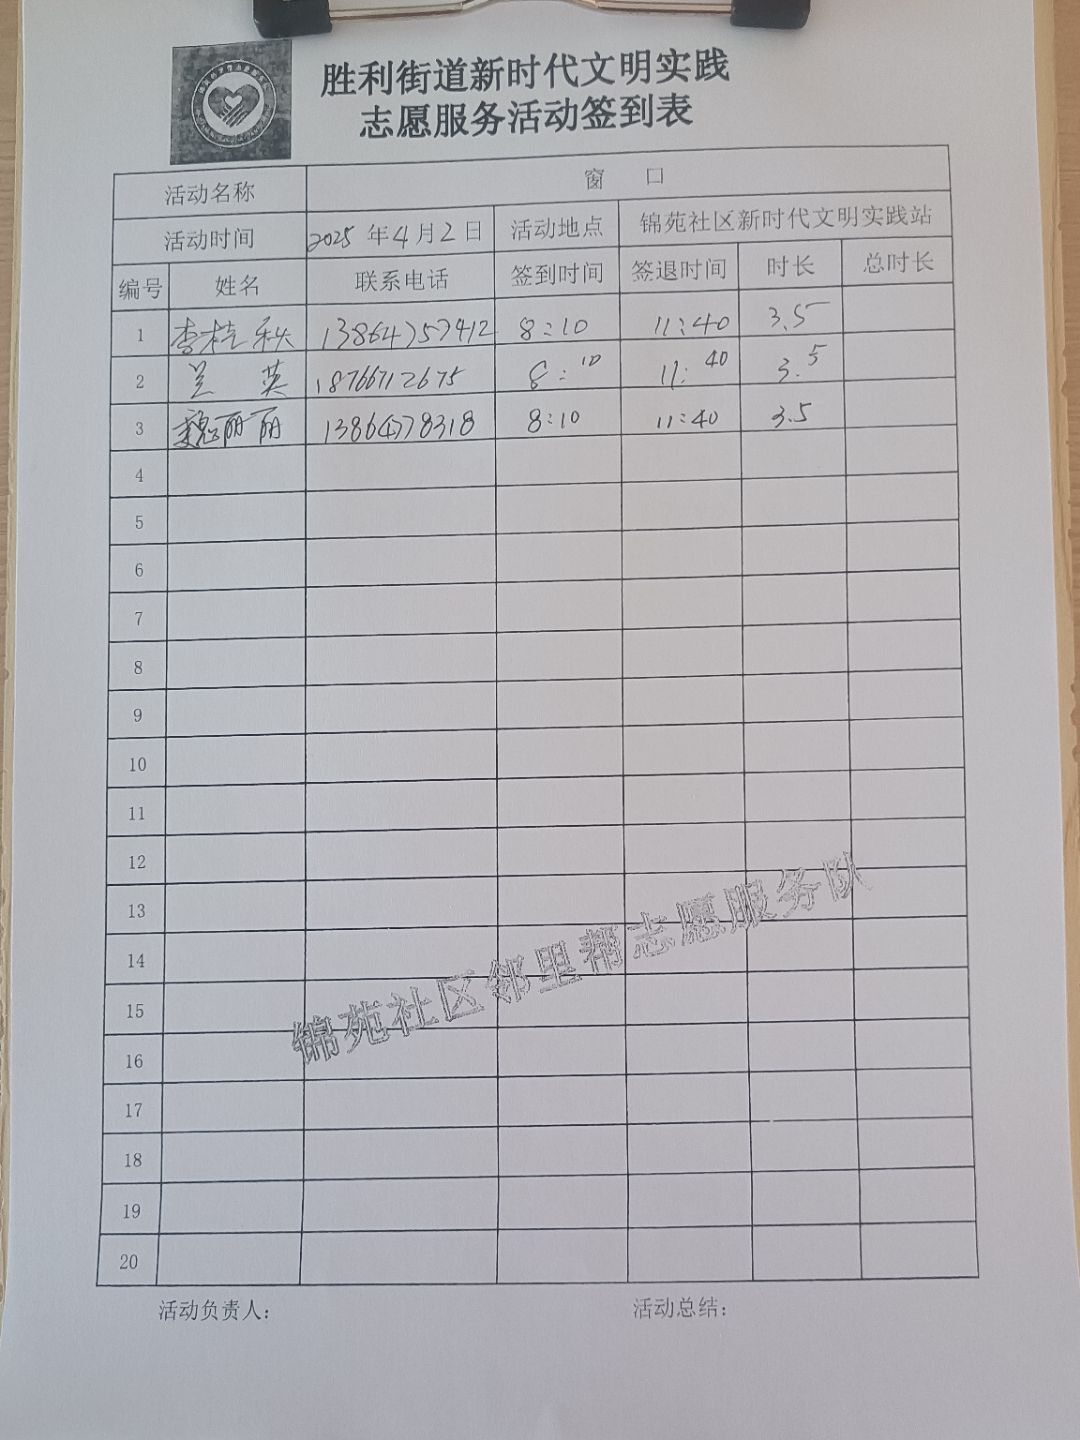 胜利街道新时代文明实践
志愿服务活动签到表
活动名称 窗 口
活动时间 2025 年 4 月 2 日 活动地点 锦苑社区新时代文明实践站
编号 姓名 联系电话 签到时间 签退时间 时长 总时长
1 李桂秋 13864757412 8:10 11:40 3.5
2 兰 英 18766712675 8:10 11:40 3.5
3 魏丽丽 13864778318 8:10 11:40 3.5
4
5
6
7
8
9
10
11
12
13
14
15
16
17
18
19
20
锦苑社区邻里帮志愿服务队
活动负责人： 活动总结：